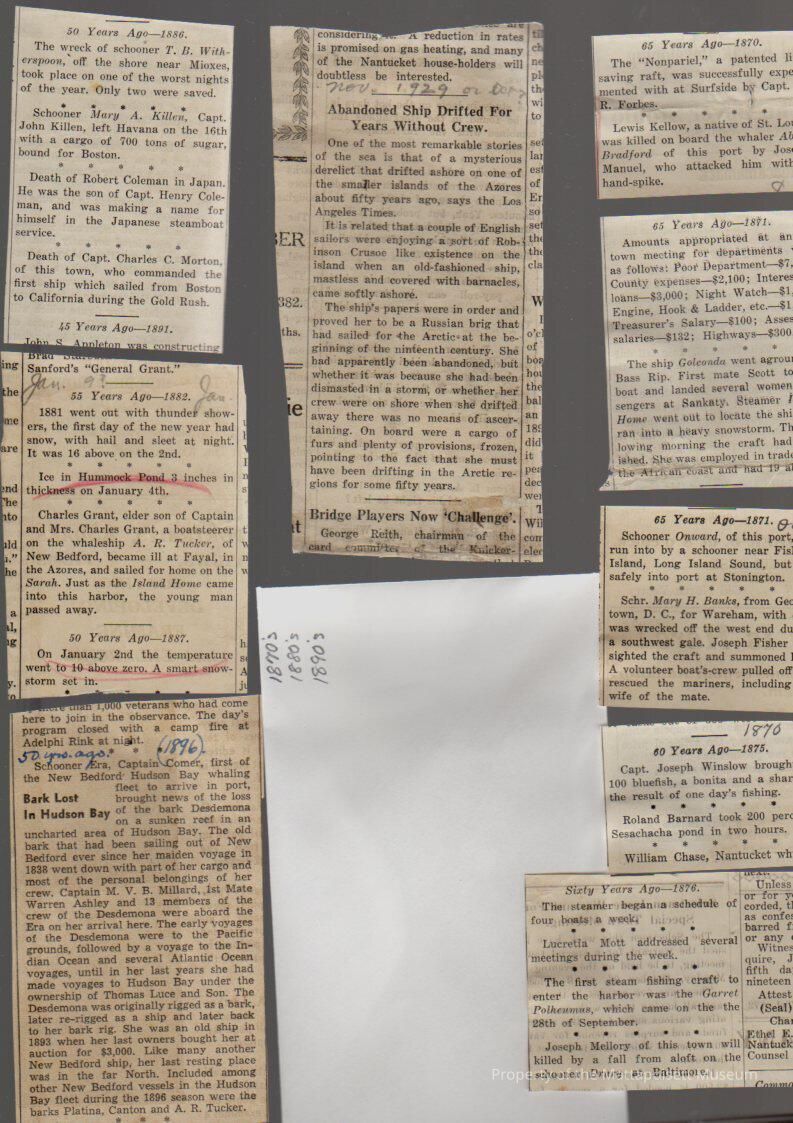 50 Years Ago—1886.
The wreck of schooner T. B. With-
erspoon, off the shore near Mioxes,
took place on one of the worst nights
of the year. Only two were saved.
* * * * *
Schooner Mary A. Killen, Capt.
John Killen, left Havana on the 16th
with a cargo of 700 tons of sugar,
bound for Boston.
* * * * *
Death of Robert Coleman in Japan.
He was the son of Capt. Henry Cole-
man, and was making a name for
himself in the Japanese steamboat
service.
* * * * *
Death of Capt. Charles C. Morton,
of this town, who commanded the
first ship which sailed from Boston
to California during the Gold Rush.
45 Years Ago—1891.
John S. Appleton was constructing
Sanford's "General Grant."
Jan.
Jan.
55 Years Ago—1882.
1881 went out with thunder show-
ers, the first day of the new year had
snow, with hail and sleet at night.
It was 16 above on the 2nd.
* * * * *
Ice in Hummock Pond 3 inches in
thickness on January 4th.
* * * * *
Charles Grant, elder son of Captain
and Mrs. Charles Grant, a boatsteerer
on the whaleship A. R. Tucker, of
New Bedford, became ill at Fayal, in
the Azores, and sailed for home on the
Sarah. Just as the Island Home came
into this harbor, the young man
passed away.
50 Years Ago—1887.
On January 2nd the temperature
went to 10 above zero. A smart snow-
storm set in.
more than 1,000 veterans who had come
here to join in the observance. The day's
program closed with a camp fire at
Adelphi Rink at night.
50 yrs. ago. (1896)
Schooner Era, Captain Comer, first of
the New Bedford Hudson Bay whaling
fleet to arrive in port,
Bark Lost brought news of the loss
In Hudson Bay of the bark Desdemona
on a sunken reef in an
uncharted area of Hudson Bay. The old
bark that had been sailing out of New
Bedford ever since her maiden voyage in
1838 went down with part of her cargo and
most of the personal belongings of her
crew. Captain M. V. B. Millard, 1st Mate
Warren Ashley and 13 members of the
crew of the Desdemona were aboard the
Era on her arrival here. The early voyages
of the Desdemona were to the Pacific
grounds, followed by a voyage to the In-
dian Ocean and several Atlantic Ocean
voyages, until in her last years she had
made voyages to Hudson Bay under the
ownership of Thomas Luce and Son. The
Desdemona was originally rigged as a bark,
later re-rigged as a ship and later back
to her bark rig. She was an old ship in
1893 when her last owners bought her at
auction for $3,000. Like many another
New Bedford ship, her last resting place
was in the far North. Included among
other New Bedford vessels in the Hudson
Bay fleet during the 1896 season were the
barks Platina, Canton and A. R. Tucker.
* * *
considering A reduction in rates
is promised on gas heating, and many
of the Nantucket house-holders will
doubtless be interested.
Nov. 1929 or
Abandoned Ship Drifted For
Years Without Crew.
One of the most remarkable stories
of the sea is that of a mysterious
derelict that drifted ashore on one of
the smaller islands of the Azores
about fifty years ago, says the Los
Angeles Times.
It is related that a couple of English
sailors were enjoying a sort of Rob-
inson Crusoe like existence on the
island when an old-fashioned ship,
mastless and covered with barnacles,
came softly ashore.
The ship's papers were in order and
proved her to be a Russian brig that
had sailed for the Arctic at the be-
ginning of the nineteenth century. She
had apparently been abandoned, but
whether it was because she had been
dismasted in a storm, or whether her
crew were on shore when she drifted
away there was no means of ascer-
taining. On board were a cargo of
furs and plenty of provisions, frozen,
pointing to the fact that she must
have been drifting in the Arctic re-
gions for some fifty years.
Bridge Players Now 'Challenge'.
George Reith, chairman of the
card committee of the Knicker-
1870's
1880's
1890's
65 Years Ago—1870.
The "Nonpariel," a patented li
saving raft, was successfully expe
mented with at Surfside by Capt.
R. Forbes.
Lewis Kellow, a native of St. Lou
was killed on board the whaler Ab
Bradford of this port by Jose
Manuel, who attacked him with
hand-spike.
65 Years Ago—1871.
Amounts appropriated at an
town meeting for departments
as follows: Poor Department—$7,
County expenses—$2,100; Interes
loans—$3,000; Night Watch—$1,
Engine, Hook & Ladder, etc.—$1
Treasurer's Salary—$100; Asses
salaries—$132; Highways—$300
* * * *
The ship Golconda went agroun
Bass Rip. First mate Scott to
boat and landed several women
sengers at Sankaty. Steamer I
Home went out to locate the shi
ran into a heavy snowstorm. Th
lowing morning the craft had
ished. She was employed in trade
the African coast and had 19 al
65 Years Ago—1871.
Schooner Onward, of this port,
run into by a schooner near Fish
Island, Long Island Sound, but
safely into port at Stonington.
* * * *
Schr. Mary H. Banks, from Geo
town, D. C., for Wareham, with
was wrecked off the west end du
a southwest gale. Joseph Fisher
sighted the craft and summoned h
A volunteer boat's-crew pulled off
rescued the mariners, including
wife of the mate.
1870
60 Years Ago—1875.
Capt. Joseph Winslow brough
100 bluefish, a bonita and a shar
the result of one day's fishing.
* * * *
Roland Barnard took 200 perc
Sesachacha pond in two hours.
* * * *
William Chase, Nantucket wh
Sixty Years Ago—1876.
The steamer began a schedule of
four boats a week.
* * * * *
Lucretia Mott addressed several
meetings during the week.
* * * * *
The first steam fishing craft to
enter the harbor was the Garret
Polheumus, which came on the the
28th of September.
* * * * *
Joseph Mellory of this town will
killed by a fall from aloft on the
schooner Drury at Baltimore.
Unless
or for y
corded, th
as confes
barred f
or any
Witnes
quire, J
fifth da
nineteen
Attest
(Seal)
Char
Ethel E.
Nantuck
Counsel
Commo
Property of the Mattapoisett Museum